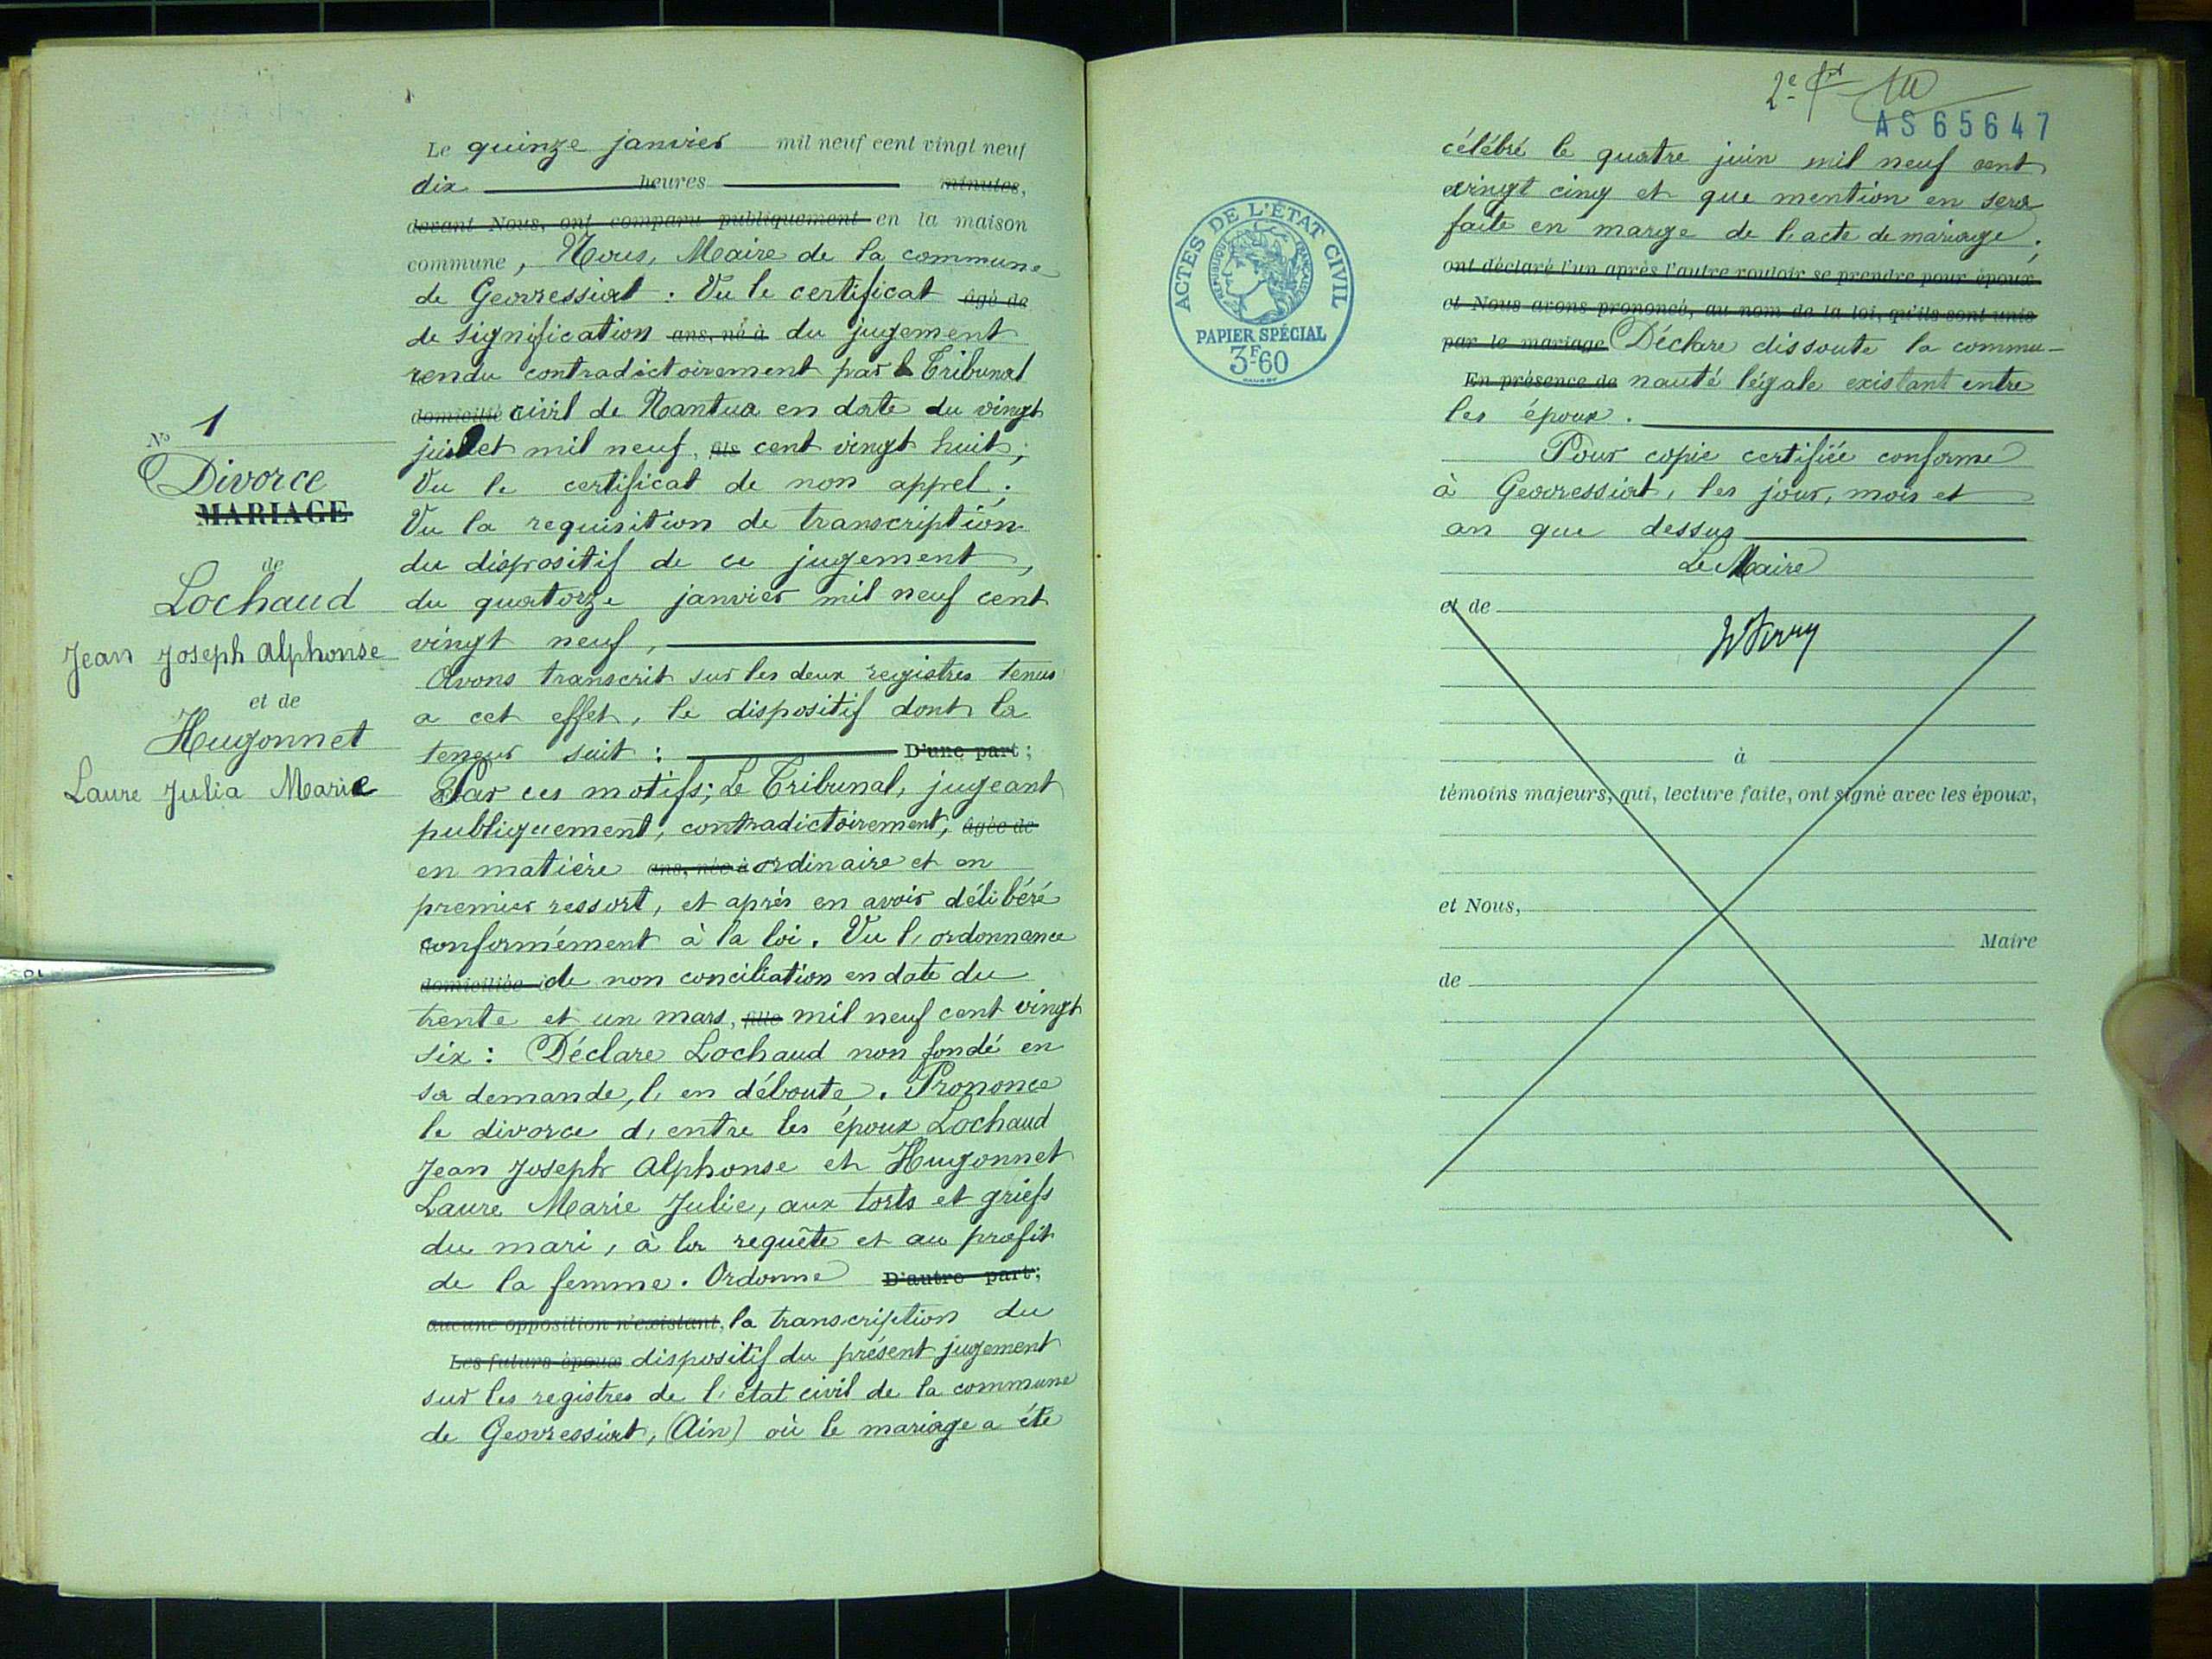 Le quinze janvier mil neuf cent vingt neuf
dix heures minutes,
devant Nous, ont comparu publiquement en la maison
commune, Nous, Maire de la commune
de Geovressiat. Vu le certificat âgé de
de signification ans, né à du jugement
rendu contradictoirement par le Tribunal
domicilié civil de Nantua en date du vingt
juillet mil neuf fils cent vingt huit;
Vu le certificat de non appel;
Vu la requisition de transcription
du dispositif de ce jugement,
du quatorze janvier mil neuf cent
vingt neuf,
Avons transcrit sur les deux registres tenus
a cet effet, le dispositif dont la
teneur suit : D'une part;
Par ces motifs; Le Tribunal, jugeant
publiquement, contradictoirement, âgée de
en matière ans, née à ordinaire et en
premier ressort, et après en avoir délibéré
conformément à la loi. Vu l'ordonnance
domiciliée de non conciliation en date du
trente et un mars, fille mil neuf cent vingt
six : Déclare Lochaud non fondé en
sa demande, l'en déboute. Prononce
le divorce d'entre les époux Lochaud
Jean Joseph Alphonse et Hugonnet
Laure Marie Julie, aux torts et griefs
du mari, à la requête et au profit
de la femme. Ordonne D'autre part;
aucune opposition n'existant, la transcription du
Les futurs époux dispositif du présent jugement
sur les registres de l'état civil de la commune
de Geovressiat, (Ain) où le mariage a été
No 1
Divorce
MARIAGE
de
Lochaud
Jean Joseph Alphonse
et de
Hugonnet
Laure Julia Marie
AS 65647
ACTES DE L'ÉTAT CIVIL
RÉPUBLIQUE FRANÇAISE
PAPIER SPÉCIAL
3F60
célébré le quatre juin mil neuf cent
vingt cinq et que mention en sera
faite en marge de l'acte de mariage;
ont déclaré l'un après l'autre vouloir se prendre pour époux
et Nous avons prononcé, au nom de la loi, qu'ils sont unis
par le mariage Déclare dissoute la commu-
En présence de nauté légale existant entre
les époux.
Pour copie certifiée conforme
à Geovressiat, les jour, mois et
an que dessus
Le Maire
et de
à
témoins majeurs, qui, lecture faite, ont signé avec les époux,
et Nous,
Maire
de